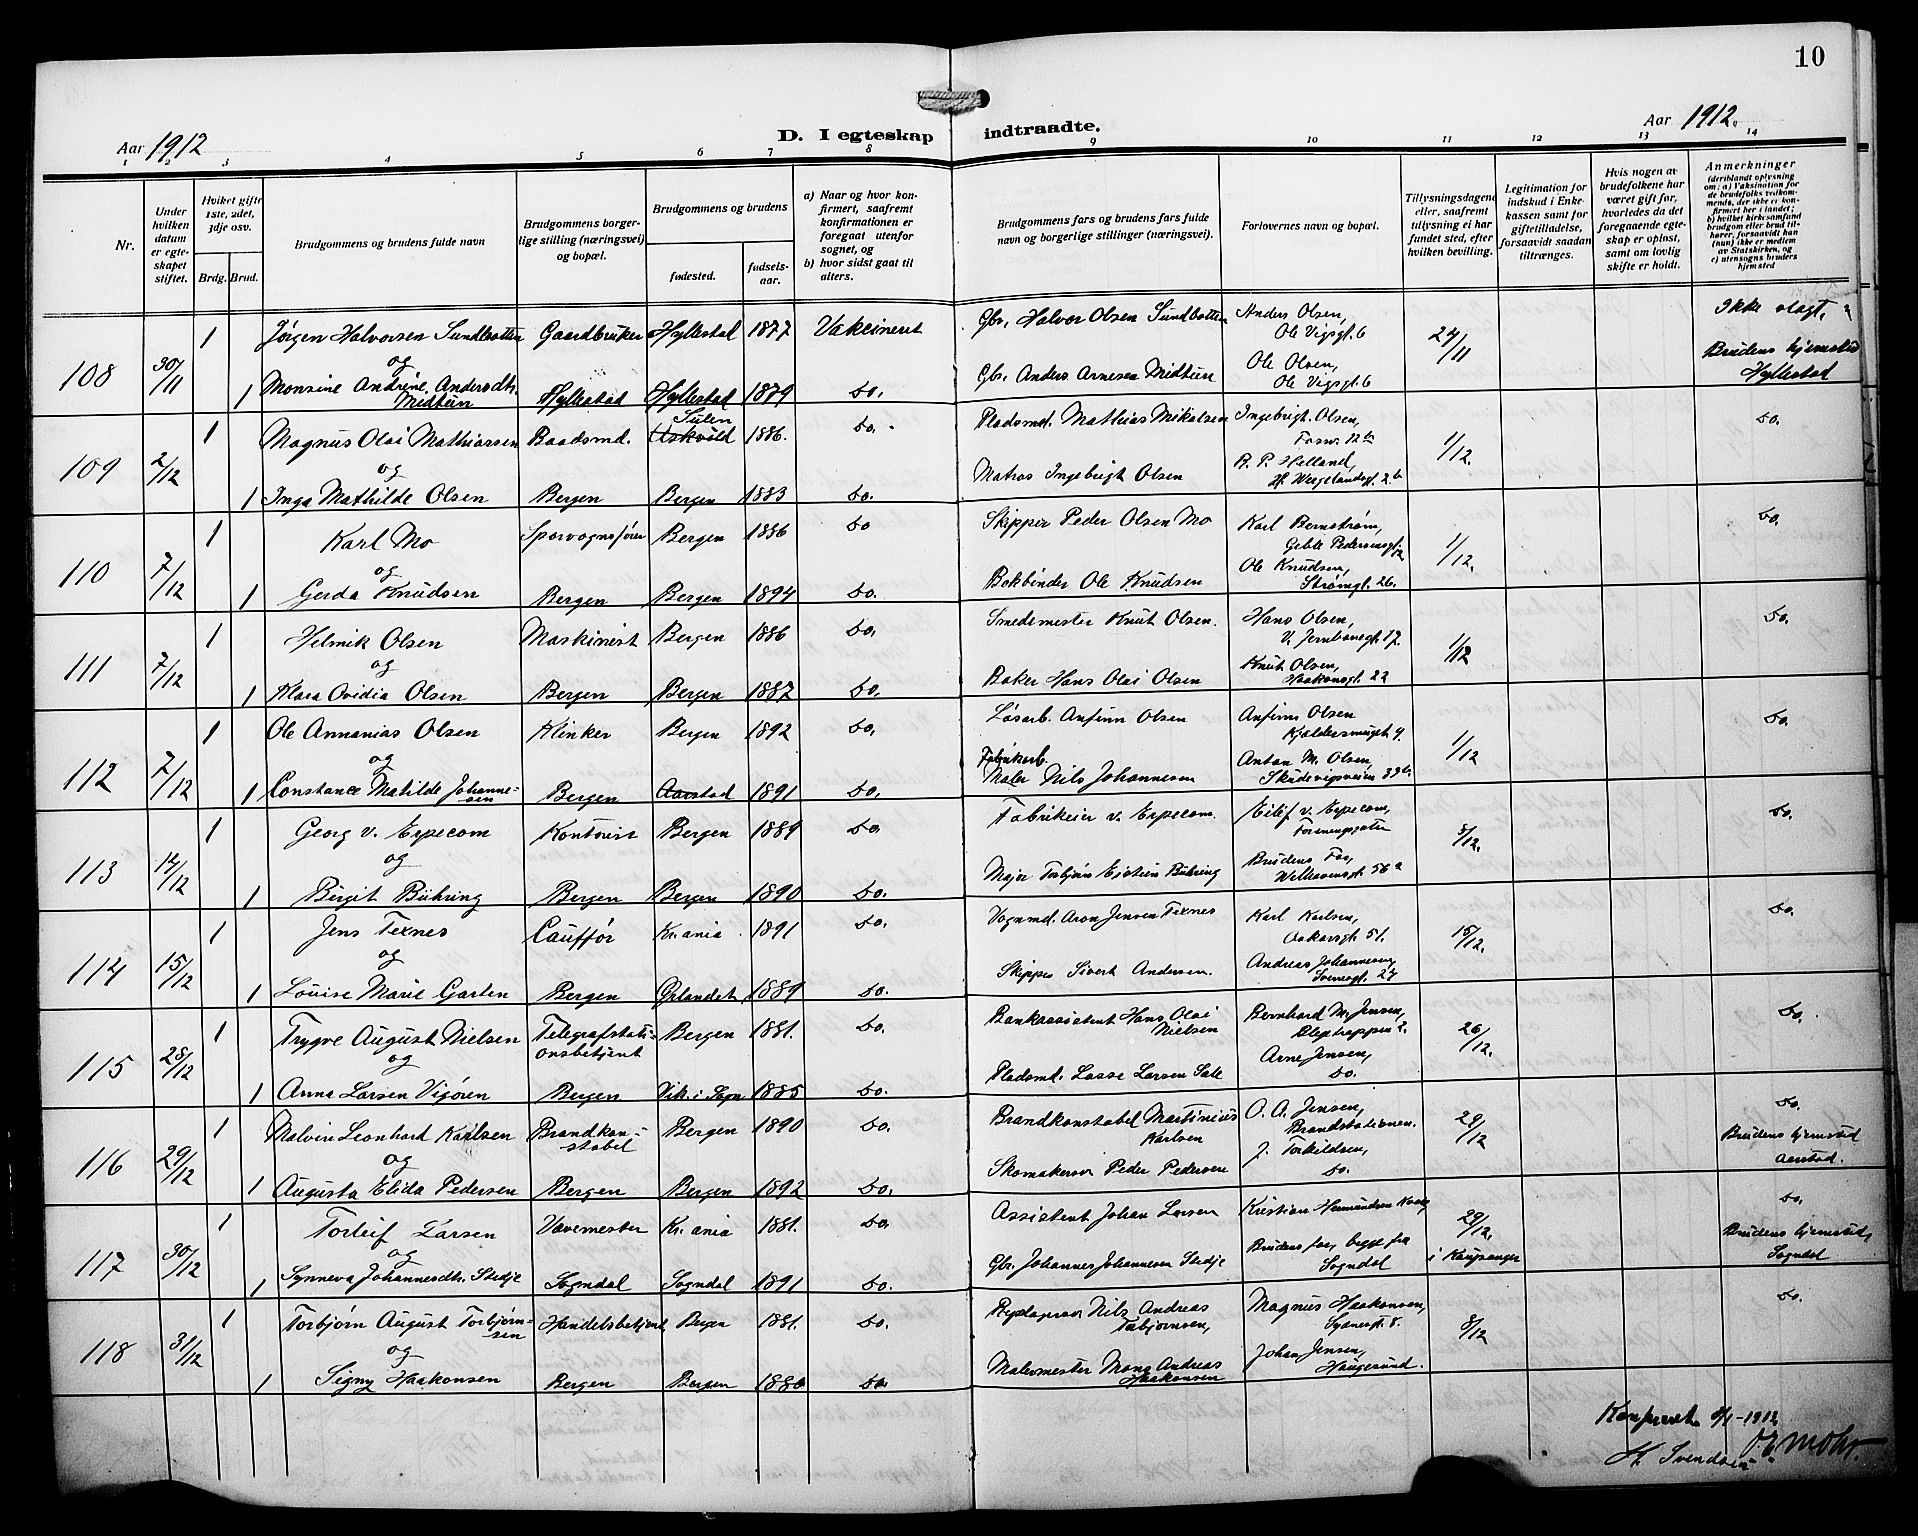 10
Aar 1912
D. I egteskap indtraadte.
Aar 1912.
1 2 3 4 5 6 7 8 9 10 11 12 13 14
Nr.
Under hvilken datum er egteskapet stiftet.
Hvilket gifte 1ste, 2det, 3dje osv.
Brdg. Brud.
Brudgommens og brudens fulde navn
Brudgommens borgerlige stilling (næringsvei) og bopæl.
Brudgommens og brudens
fødested.
fødselsaar.
a) Naar og hvor konfirmert, saafremt konfirmationen er foregaat utenfor sognet, og
b) hvor sidst gaat til alters.
Brudgommens fars og brudens fars fulde navn og borgerlige stillinger (næringsvei).
Forlovernes navn og bopæl.
Tillysningsdagene eller, saafremt tillysning ei har fundet sted, efter hvilken bevilling.
Legitimation for indskud i Enkekassen samt for giftetilladelse, forsaavidt saadan tiltrænges.
Hvis nogen av brudefolkene har været gift før, hvorledes da det foregaaende egteskap er opløst, samt om lovlig skifte er holdt.
Anmerkninger (deriblandt oplysning om: a) Vaksination for de brudefolks vedkommende, der ikke er konfirmert her i landet; b) hvilket kirkesamfund brudgom eller brud tilhører, forsaavidt han (hun) ikke er medlem av Statskirken, og c) utensogns bruders hjemsted
108 30/11 1 Jørgen Halvorsen Sundbotten Gaardbruker Hyllestad 1877 Vakcineret Gbr. Halvor Olsen Sundbotten Anders Olsen, Ole Vigsgt. 6 24/11 Ikke slagt.
og
1 Monsine Andrine Andersdtr. Midtun Hyllestad Hyllestad 1879 Do. Gbr. Anders Arnesen Midtun Ole Olsen, Ole Vigsgt. 6 Brudens hjemsted Hyllestad
109 2/12 1 Magnus Olai Mathiassen Baadsmd. Askvold Sulen 1886. Do. Pladsmd. Mathias Mikalsen Ingebrigt Olsen, 1/12. Do.
og
1 Inga Mathilde Olsen Bergen Bergen 1883 Do. Matros Ingebrigt Olsen B. P. Helland, H. Wergelandsgt. 2b
110 7/12 1 Karl Mo Sporvognsfører Bergen 1886 Do Skipper Peder Olsen Mo Karl Bernstrøm, Gebte Pedersensgt. 12 1/12. Do.
og
1 Gerda Knudsen Bergen Bergen 1894 Do. Bokbinder Ole Knudsen Ole Knudsen, Strømgt. 26.
111 7/12 1 Helmik Olsen Maskinist Bergen 1886 Do. Smedemester Knut Olsen. Hans Olsen, V. Jernbanegt. 17 1/12 Do.
og
1 Klara Ovidia Olsen Bergen Bergen 1887 Do. Baker Hans Olai Olsen Knut Olsen, Haakonsgt. 22
112 7/12 1 Ole Annanias Olsen Klinker Bergen 1892 Do. Løsarb. Anfinn Olsen Anfinn Olsen Kjeldersmuget 9. 1/12 Do.
og
1 Constance Matilde Johannesen Bergen Aarstad 1891 Do. Fabrikarb. Maler Nils Johannesen Anton M. Olsen, Skudevigsveien 39b.
113 14/12 1 Georg v. Erpecom Kontorist Bergen 1889 Do. Fabrikeier v. Erpecom. Eilef v. Erpecom, Foreningsgaten 8/12. Do.
og
1 Birgit Bühring Bergen Bergen 1890 Do. Major Torbjørn Eistein Bühring Brudens Far, Welhavensgt. 56a
114 15/12 1 Jens Texnes Cauffør Kr.ania 1891 Do. Vognmd. Aron Jensen Texnes Karl Karlsen, Oskarsgt. 51. 15/12. Do.
og
1 Louise Marie Garten Bergen Ørlandet 1889 Do. Skipper Sivert Andersen. Andreas Johannesen, Sverresgt. 27
115 28/12 1 Trygve August Nielsen Telegrafstationsbetjent Bergen 1881. Do. Bankassistent Hans Olai Nielsen Bernhard M. Jensen, 26/12. Do.
og
1 Anna Larsen Vigøren Bergen Vik i Sogn 1885 Do. Pladsmd. Lasse Larsen Sæle Arne Jensen, Do.
116 29/12 1 Malvin Leonhard Karlsen Brandkonstabel Bergen 1890 Do. Brandkonstabel Martinius Karlsen O. A. Jensen, Brandstationen. 29/12 Do.
og
1 Augusta Elida Pedersen Bergen Bergen 1892 Do. Skomakersv. Peder Pedersen J. Torkildsen, Do. Brudens hjemsted Aarstad.
117 30/12 1 Torleif Larsen Vævemester Kr.ania 1881. Do. Assistent Johan Larsen Kristian Hermundsen 29/12. i Kaupanger Do.
og
1 Synneva Johannesdtr. Stedje Sogndal Sogndal 1891 Do. Gbr. Johannes Johannesen Stedje Brudens far, begge fra Sogndal Brudens hjemsted, Sogndal
118 31/12 1 Torbjørn August Torbjørnsen Handelsbetjent Bergen 1881. Do. Nils Andreas Torbjørnsen, Magnus Haakonsen, Sydnerst. 8. 8/12 Do.
og
1 Signy Haakonsen Bergen Bergen 1880 Do. Malermester Mons Andreas Haakonsen Johan Jensen, Haugesund.
Konfereret 9/1-1913
H. Svendsen O. E. Mohr.